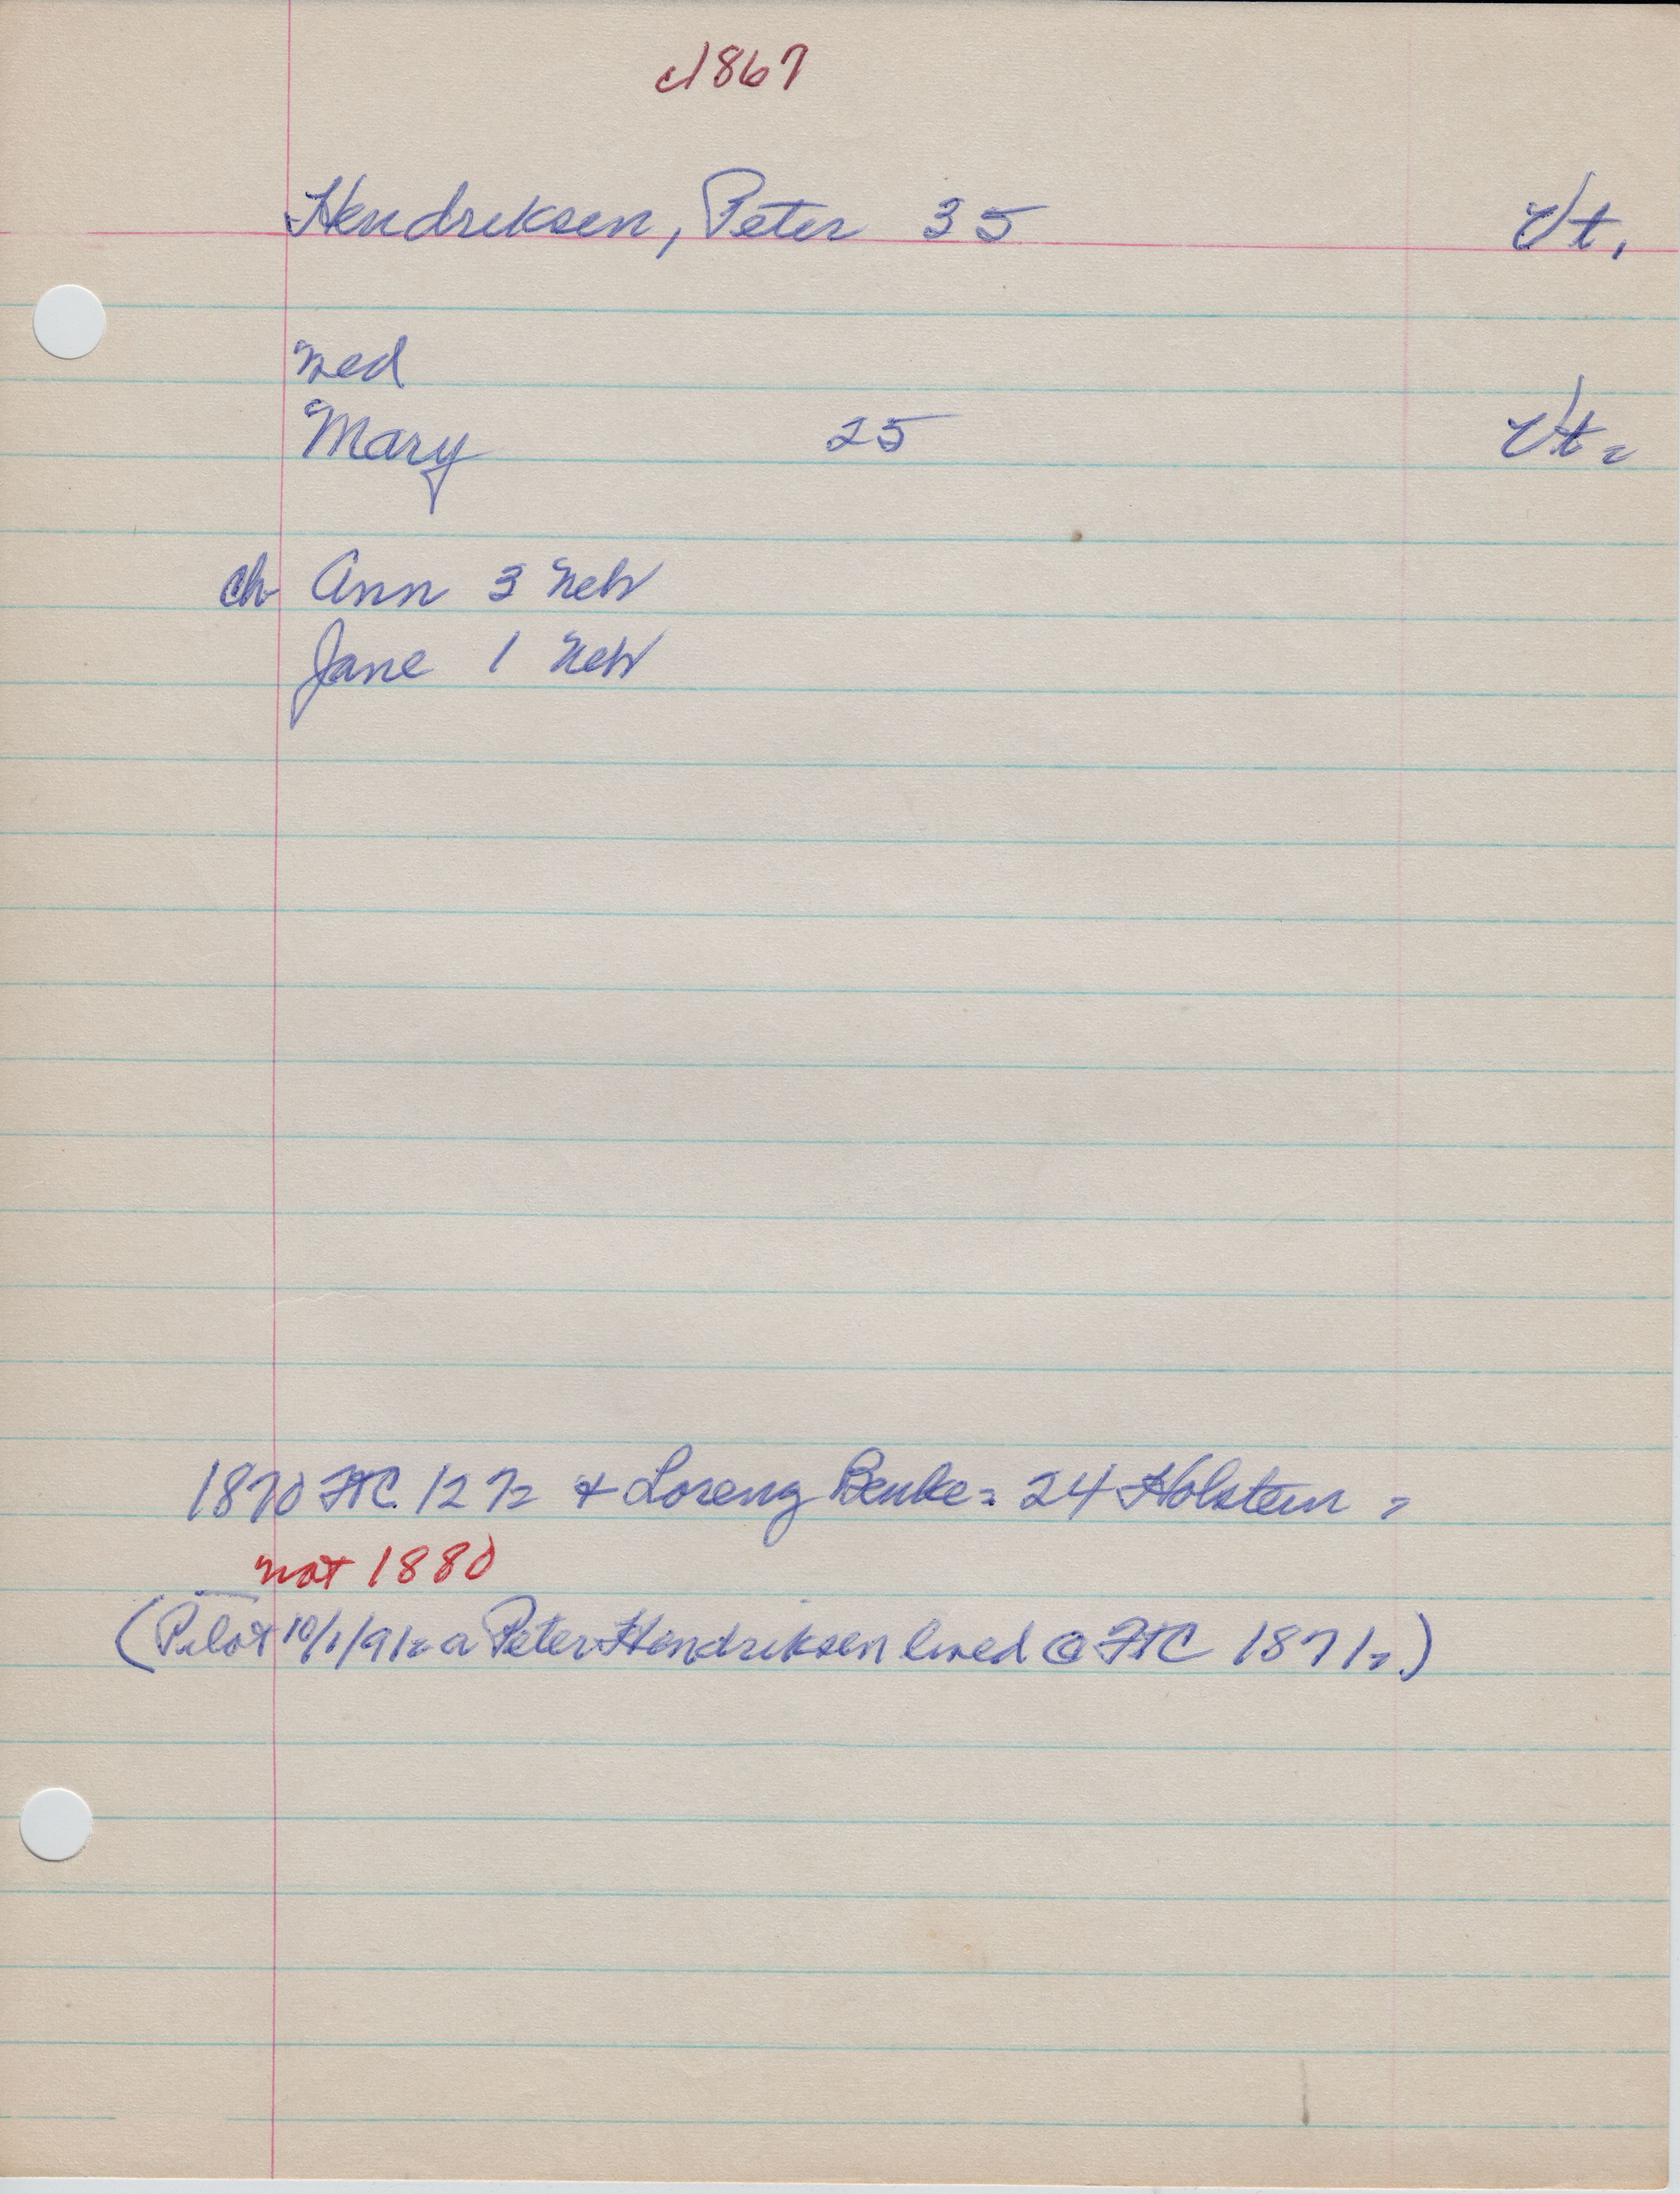 c1867
Hendriksen, Peter 35 Vt.
med
Mary 25 Vt.
ch Ann 3 Neb
Jane 1 Neb
1870 FtC. 12 & Lorenz Benke. 24 Holstein
not 1880
(Pilot 10/1/91 a Peter Hendriksen lived @ FtC 1871.)